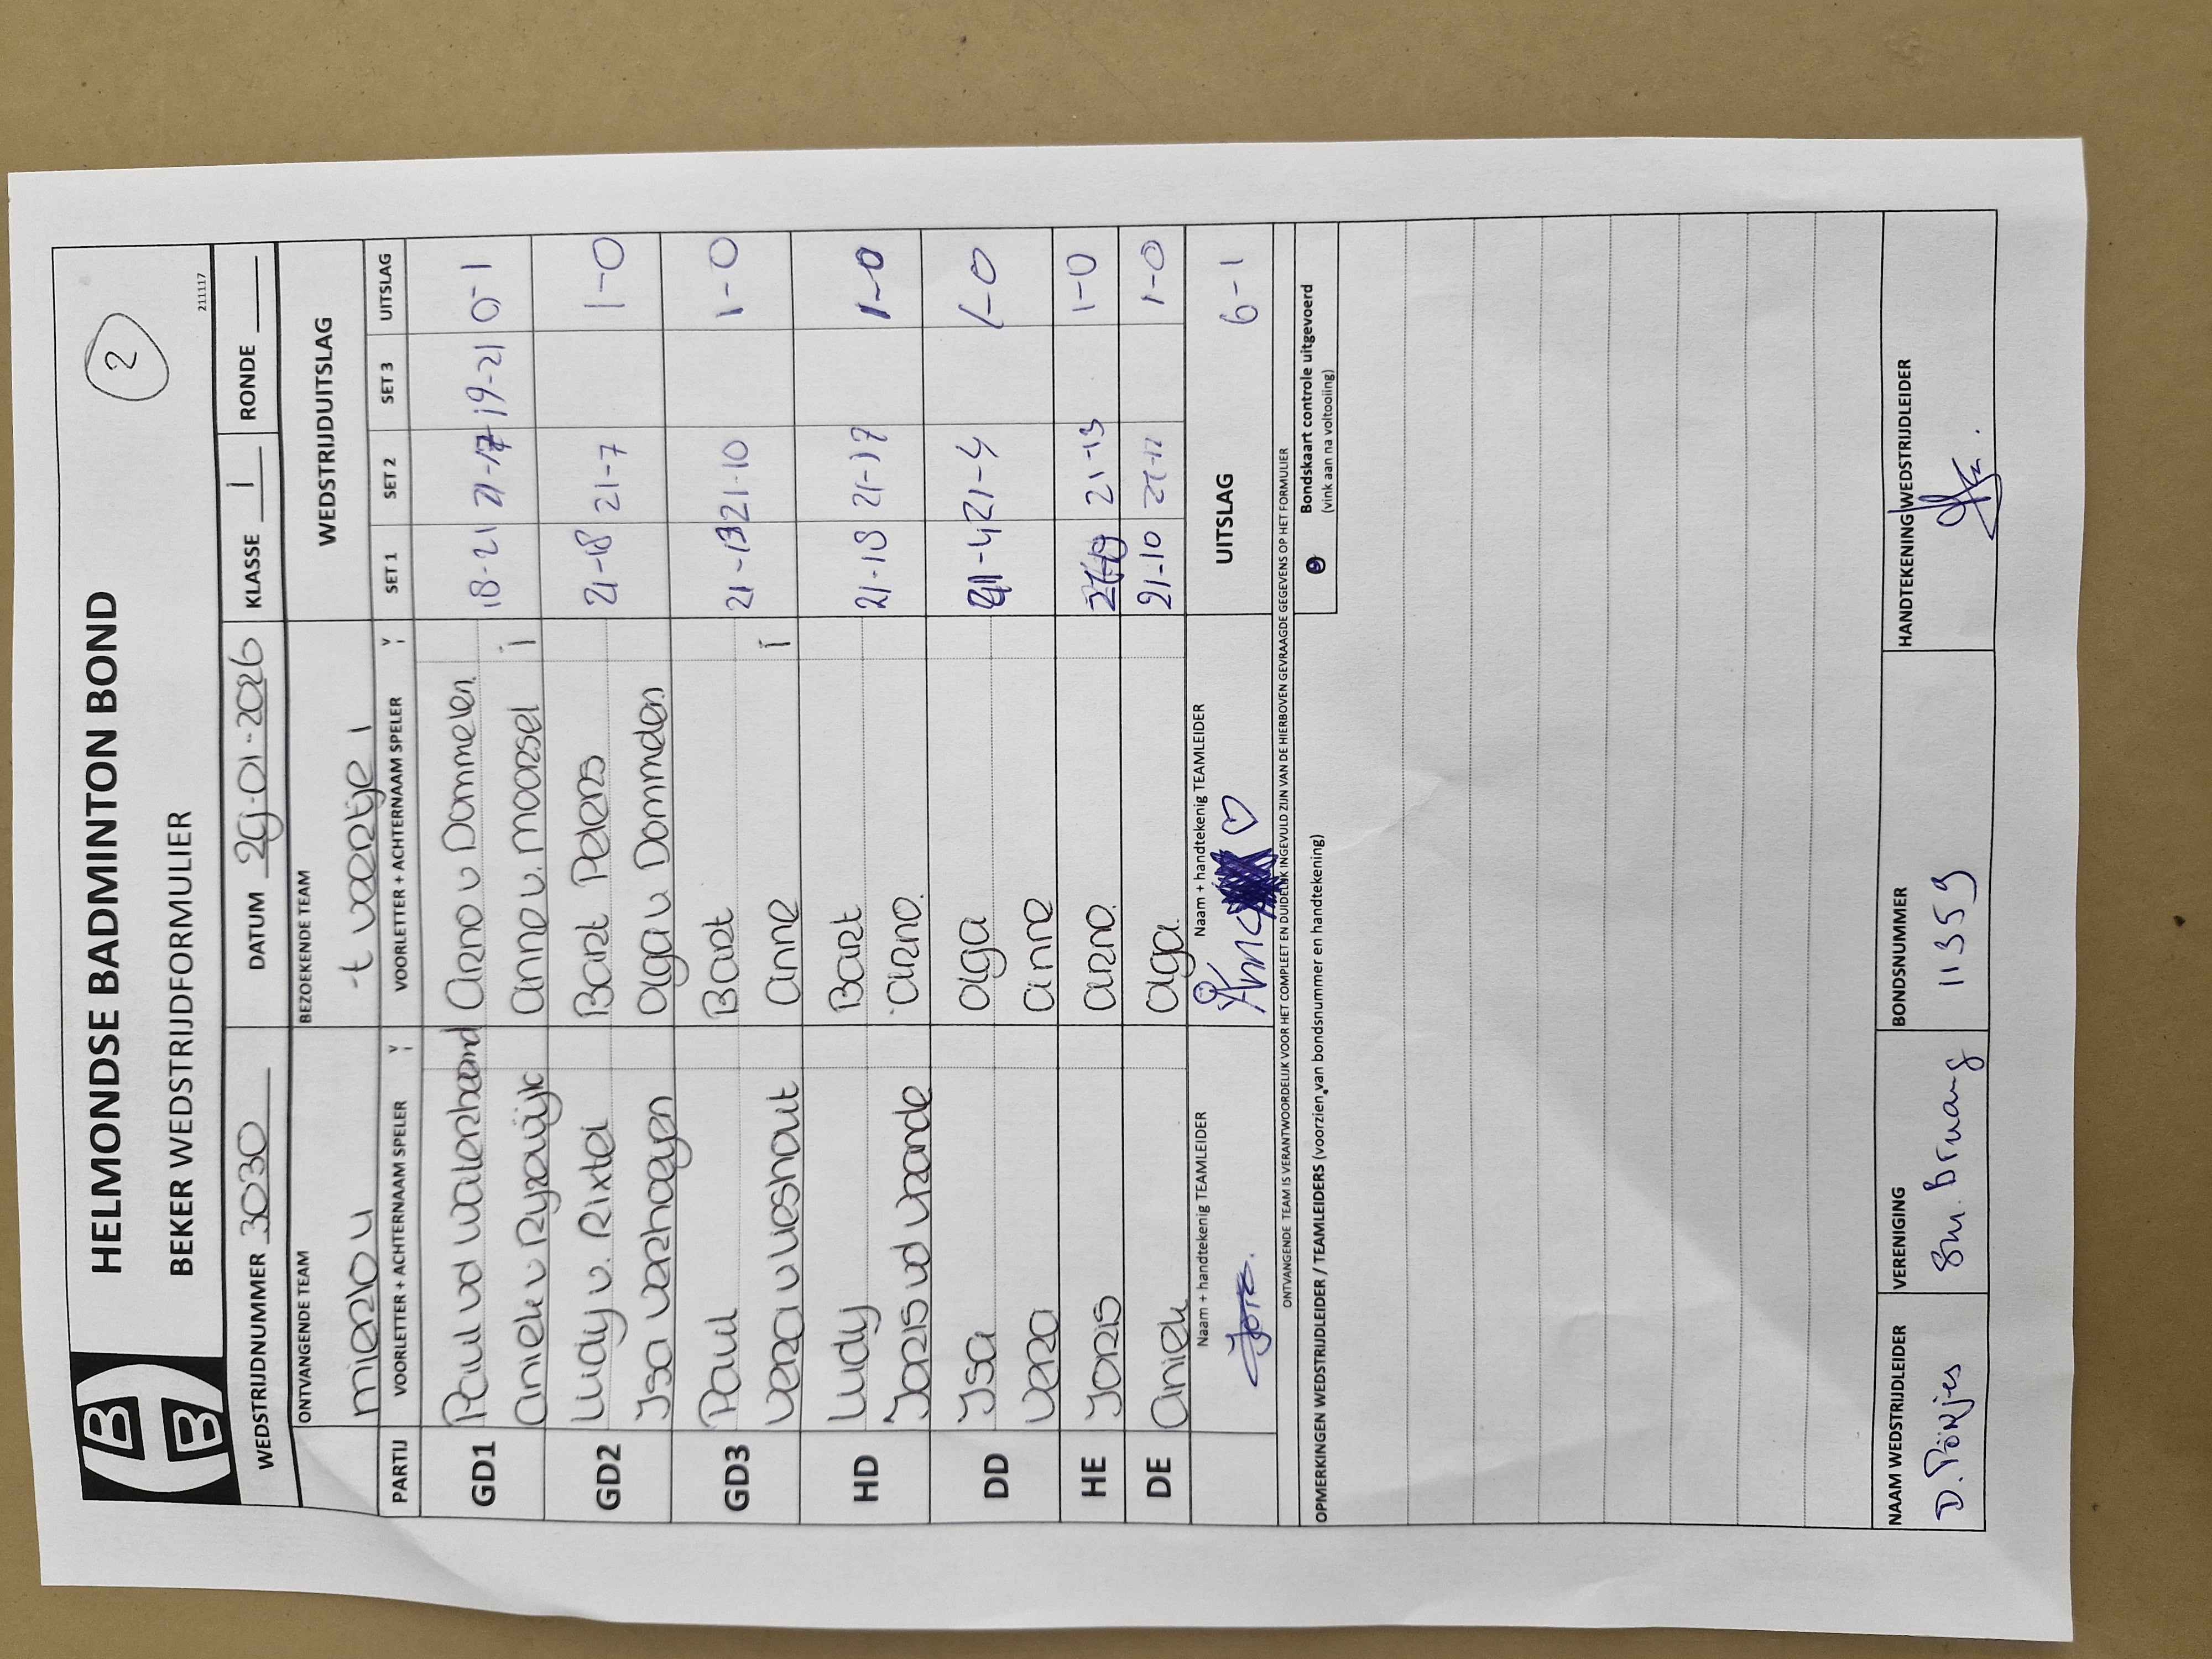 HELMONDSE BADMINTON BOND
2
BEKER WEDSTRIJDFORMULIER
211117
WEDSTRIJDNUMMER 3030 DATUM 29-01-2026 KLASSE 1 RONDE
ONTVANGENDE TEAM BEZOEKENDE TEAM WEDSTRIJDUITSLAG
mierlo 4 -t veertje 1
PARTIJ VOORLETTER + ACHTERNAAM SPELER VOORLETTER + ACHTERNAAM SPELER SET 1 SET 2 SET 3 UITSLAG
GD1 Paul vd Waterbeemd Arno v Dommelen 18-21 21-17 19-21 0-1
Aniek v Ryswijk Anne v. Moorsel 1
GD2 Ludy v. Rixtel Bart Peters 21-18 21-7 1-0
Isa Verhoeyen Olga v Dommelen
GD3 Paul Bart 21-13 21-10 1-0
Vera v Vleshout Anne 1
HD Ludy Bart 21-18 21-17 1-0
Joris vd Vrande Arno.
DD Isa Olga 21-4 21-4 1-0
Vera Anne
HE Joris Arno. 21-13 1-0
DE Aniek Olga. 21-10 1-0
Naam + handtekenig TEAMLEIDER Naam + handtekenig TEAMLEIDER UITSLAG 6-1
Joris. Anne
ONTVANGENDE TEAM IS VERANTWOORDELIJK VOOR HET COMPLEET EN DUIDELIJK INGEVULD ZIJN VAN DE HIERBOVEN GEVRAAGDE GEGEVENS OP HET FORMULIER
OPMERKINGEN WEDSTRIJDLEIDER / TEAMLEIDERS (voorzien van bondsnummer en handtekening)
Bondskaart controle uitgevoerd
(vink aan na voltooiing)
NAAM WEDSTRIJDLEIDER VERENIGING BONDSNUMMER HANDTEKENING WEDSTRIJDLEIDER
D. 11359